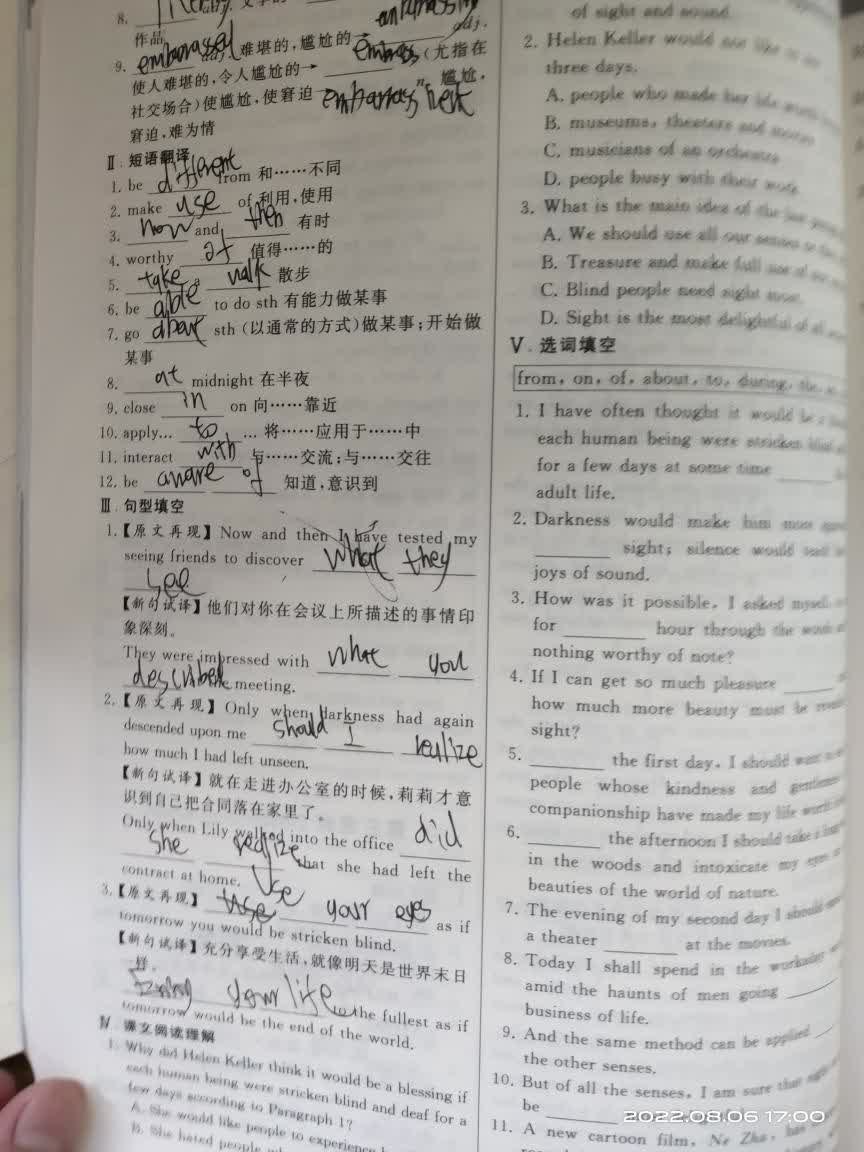 8.
作品
9. embarrassed adj. 难堪的,尴尬的→ embarrassing adj.
使人难堪的,令人尴尬的→ embrass (尤指在
社交场合)使尴尬,使窘迫 尴尬,
窘迫,难为情
Ⅱ. 短语翻译
1. be different from 和……不同
2. make use of 利用,使用
3. now and then 有时
4. worthy of 值得……的
5. take a walk 散步
6. be able to do sth 有能力做某事
7. go about sth (以通常的方式)做某事;开始做
某事
8. at midnight 在半夜
9. close in on 向……靠近
10. apply... to ... 将……应用于……中
11. interact with 与……交流;与……交往
12. be aware of 知道,意识到
Ⅲ. 句型填空
1.【原文再现】Now and then I have tested my
seeing friends to discover what they
see
【新句试译】他们对你在会议上所描述的事情印
象深刻。
They were impressed with what you
described meeting.
2.【原文再现】Only when darkness had again
descended upon me should I realize
how much I had left unseen.
【新句试译】就在走进办公室的时候,莉莉才意
识到自己把合同落在家里了。
Only when Lily walked into the office did
she realize that she had left the
contract at home.
3.【原文再现】 Use your eyes as if
tomorrow you would be stricken blind.
【新句试译】充分享受生活,就像明天是世界末日
一样。
your life the fullest as if
tomorrow would be the end of the world.
Ⅳ. 课文阅读理解
1. Why did Helen Keller think it would be a blessing if
each human being were stricken blind and deaf for a
few days according to Paragraph 1?
A. She would like people to experience
B. She hated people
of sight and sound.
2. Helen Keller would not like to
three days.
A. people who made her life worth
B. museums, theaters and
C. musicians of an orchestra
D. people busy with their work
3. What is the main idea of the last
A. We should use all our senses to
B. Treasure and make full use of
C. Blind people need sight most.
D. Sight is the most delightful of all
Ⅴ. 选词填空
from, on, of, about, to, during, the
1. I have often thought it would be a
each human being were stricken blind
for a few days at some time
adult life.
2. Darkness would make him more
sight; silence would
joys of sound.
3. How was it possible, I asked myself,
for hour through the woods
nothing worthy of note?
4. If I can get so much pleasure
how much more beauty must be
sight?
5. the first day, I should want to
people whose kindness and
companionship have made my life worth
6. the afternoon I should take a
in the woods and intoxicate my eyes
beauties of the world of nature.
7. The evening of my second day I should
a theater at the movies.
8. Today I shall spend in the workaday
amid the haunts of men going
business of life.
9. And the same method can be applied
the other senses.
10. But of all the senses, I am sure that
be
11. A new cartoon film, Ne Zha, has
2022.08.06 17:00